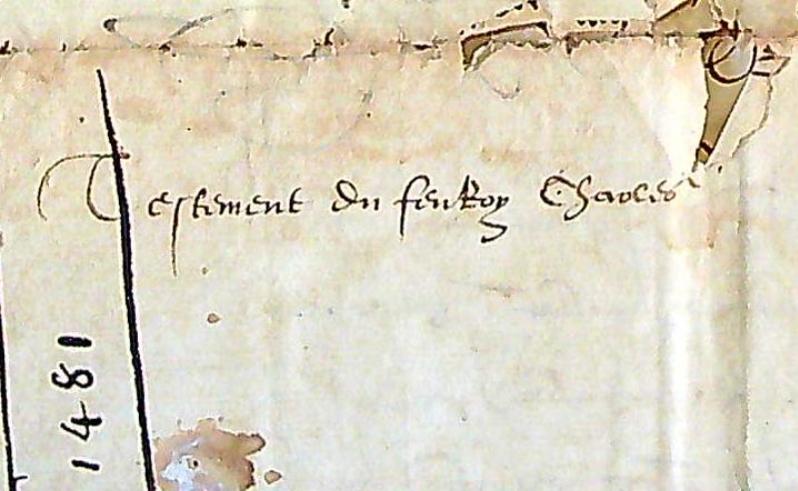 Testement du feu Roy Charles
1481